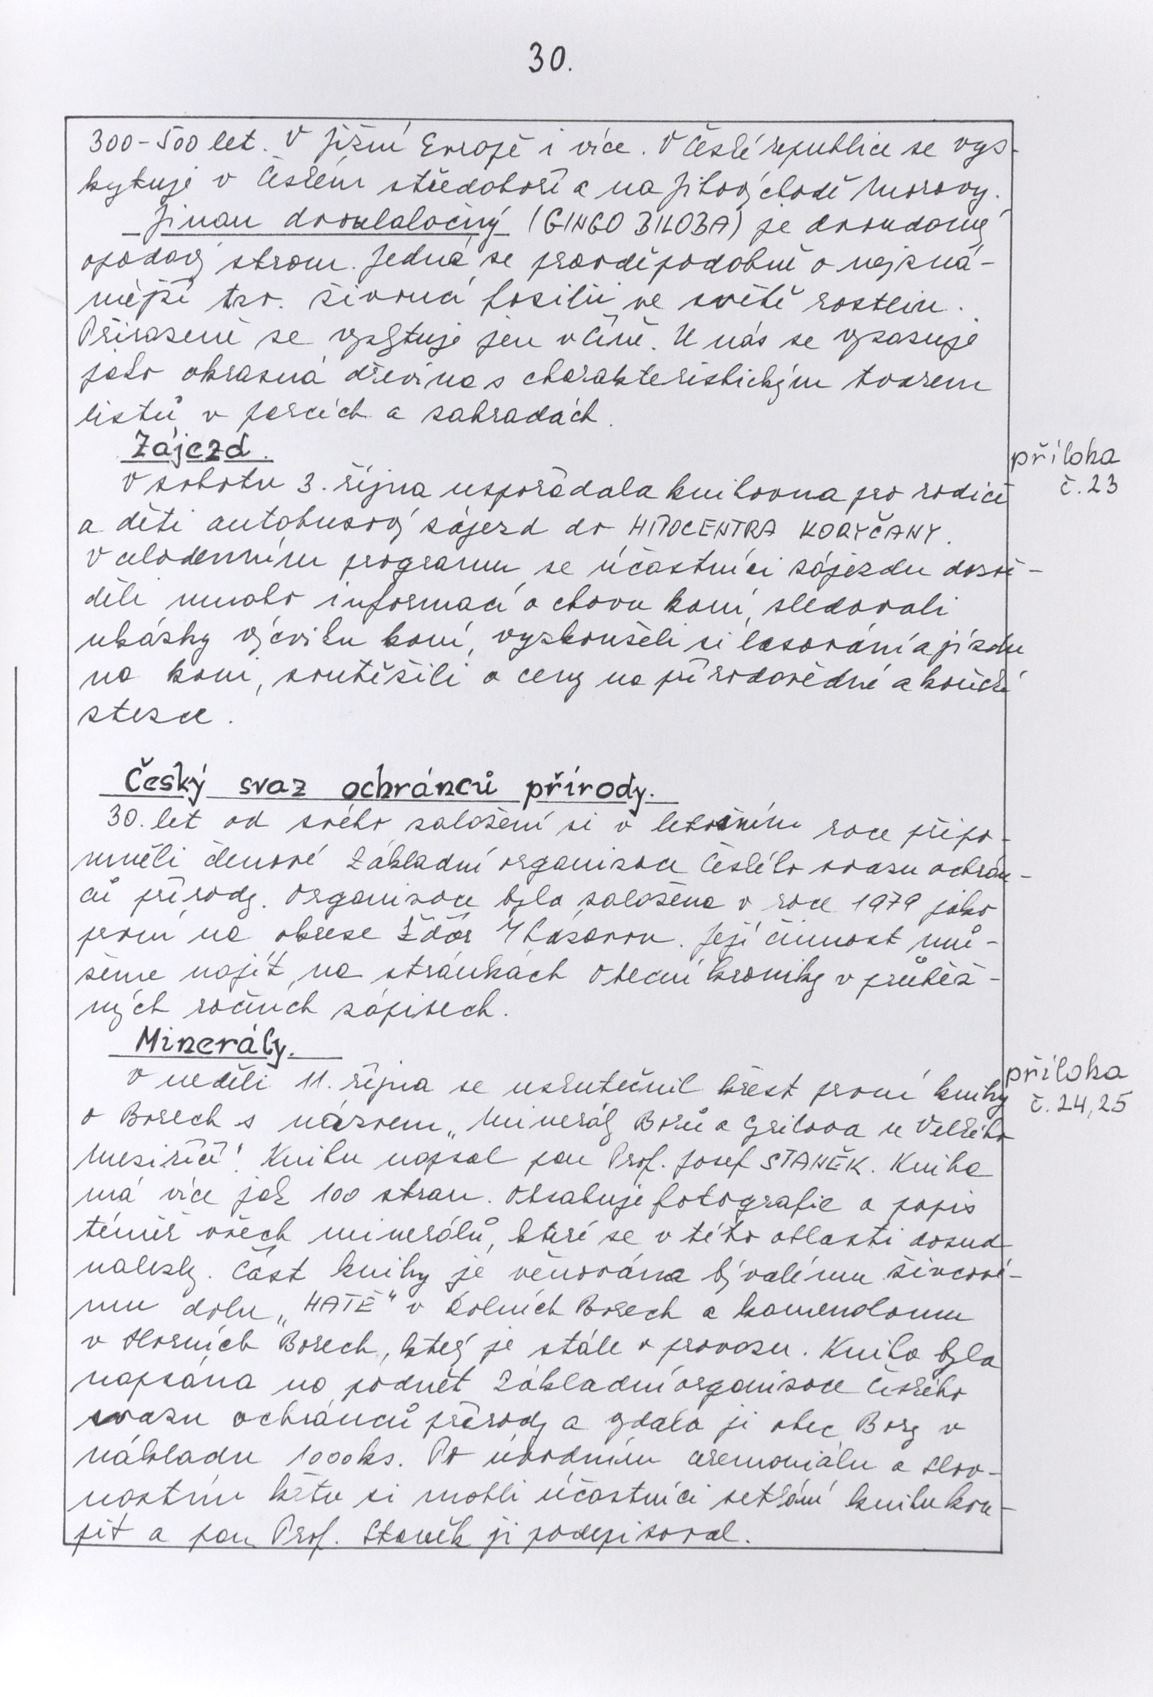 30.
300-500 let. V jižní Evropě i více. V České republice se vys-
kytuje v Českém středohoří a na jihovýchodě Moravy.
Jinan dvoulaločný (GINGO BILOBA) je dvoudomý
opadavý strom. Jedná se pravděpodobně o nejzná-
mější tzv. živoucí fosílii ve světě rostlin.
Přirozeně se vyskytuje jen v Číně. U nás se vysazuje
jako okrasná dřevina s charakteristickým tvarem
listů v parcích a zahradách.
Zájezd.
příloha
č. 23
V sobotu 3. října uspořádala knihovna pro rodiče
a děti autobusový zájezd do HIPOCENTRA KORYČANY.
V celodenním programu se účastníci zájezdu dozvě-
děli mnoho informací o chovu koní, sledovali
ukázky výcviku koní, vyzkoušeli si lasování a jízdu
na koni, soutěžili o ceny na přírodovědné a koňské
stezce.
Český svaz ochránců přírody.
30. let od svého založení si v letošním roce připo-
mněli členové Základní organizace Českého svazu ochrán-
ců přírody. Organizace byla založena v roce 1979 jako
první na okrese Žďár n/Sázavou. Její činnost mů-
žeme najít na stránkách obecní kroniky v průběž-
ných ročních zápisech.
Minerály.
příloha
č. 24, 25
V neděli 11. října se uskutečnil křest první knihy
o Borech s názvem „Minerály Borů a Cyrilova u Velkého
Meziříčí". Knihu napsal pan Prof. Josef STANĚK. Kniha
má více jak 100 stran. Obsahuje fotografie a popis
téměř všech minerálů, které se v této oblasti dosud
nalezly. Část knihy je věnována bývalému živcové-
mu dolu „HATĚ" v Dolních Borech a kamenolomu
v Horních Borech, který je stále v provozu. Kniha byla
napsána na podnět Základní organizace Českého
svazu ochránců přírody a vydala ji obec Bory v
nákladu 1000 ks. Po úvodním ceremoniálu a slav-
nostním křtu si mohli účastníci setkání knihu kou-
pit a pan Prof. Staněk ji podepisoval.